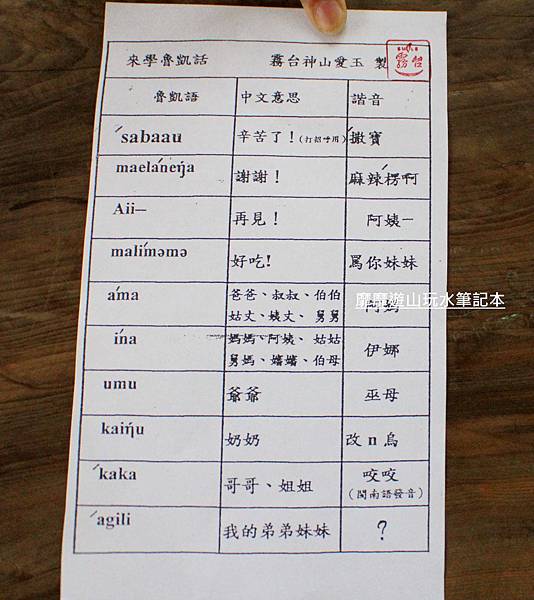 來學魯凱話 霧台神山愛玉 製
霧台
魯凱語 中文意思 諧音
ˊsabaau 辛苦了！(打招呼用) 撒寶
maeláneŋa 謝謝！ 麻辣楞啊
Aii— 再見！ 阿姨—
malimə́mə 好吃! 罵你妹妹
áma 爸爸、叔叔、伯伯
姑丈、姨丈、舅舅 阿嬤
ína 媽媽、阿姨、姑姑
舅媽、嬸嬸、伯母 伊娜
umu 爺爺 巫母
kaiŋu 奶奶 改n烏
ˊkaka 哥哥、姐姐 咬咬
(閩南語發音)
ˊagili 我的弟弟妹妹 ?
摩摩遊山玩水筆記本